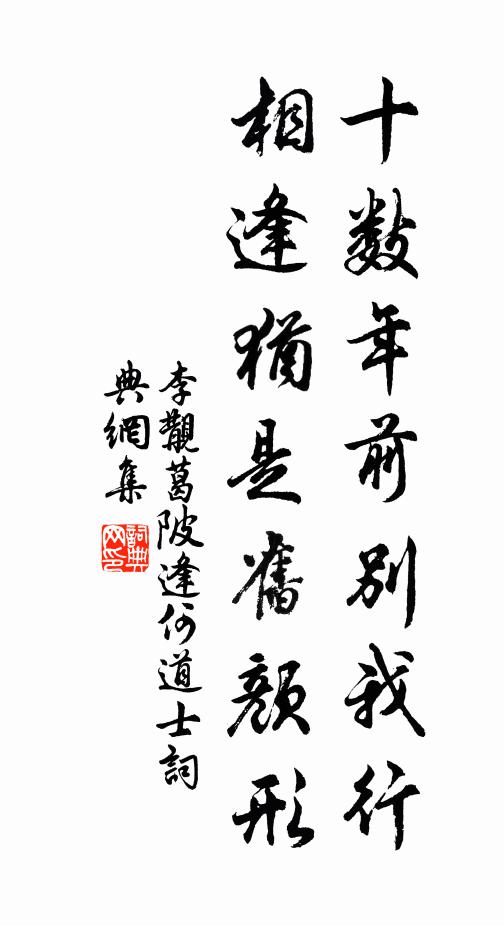 十數年前別我行
相逢猶是舊顏形
李觀葛陂逢何道士詞
典網集
詞典
网印